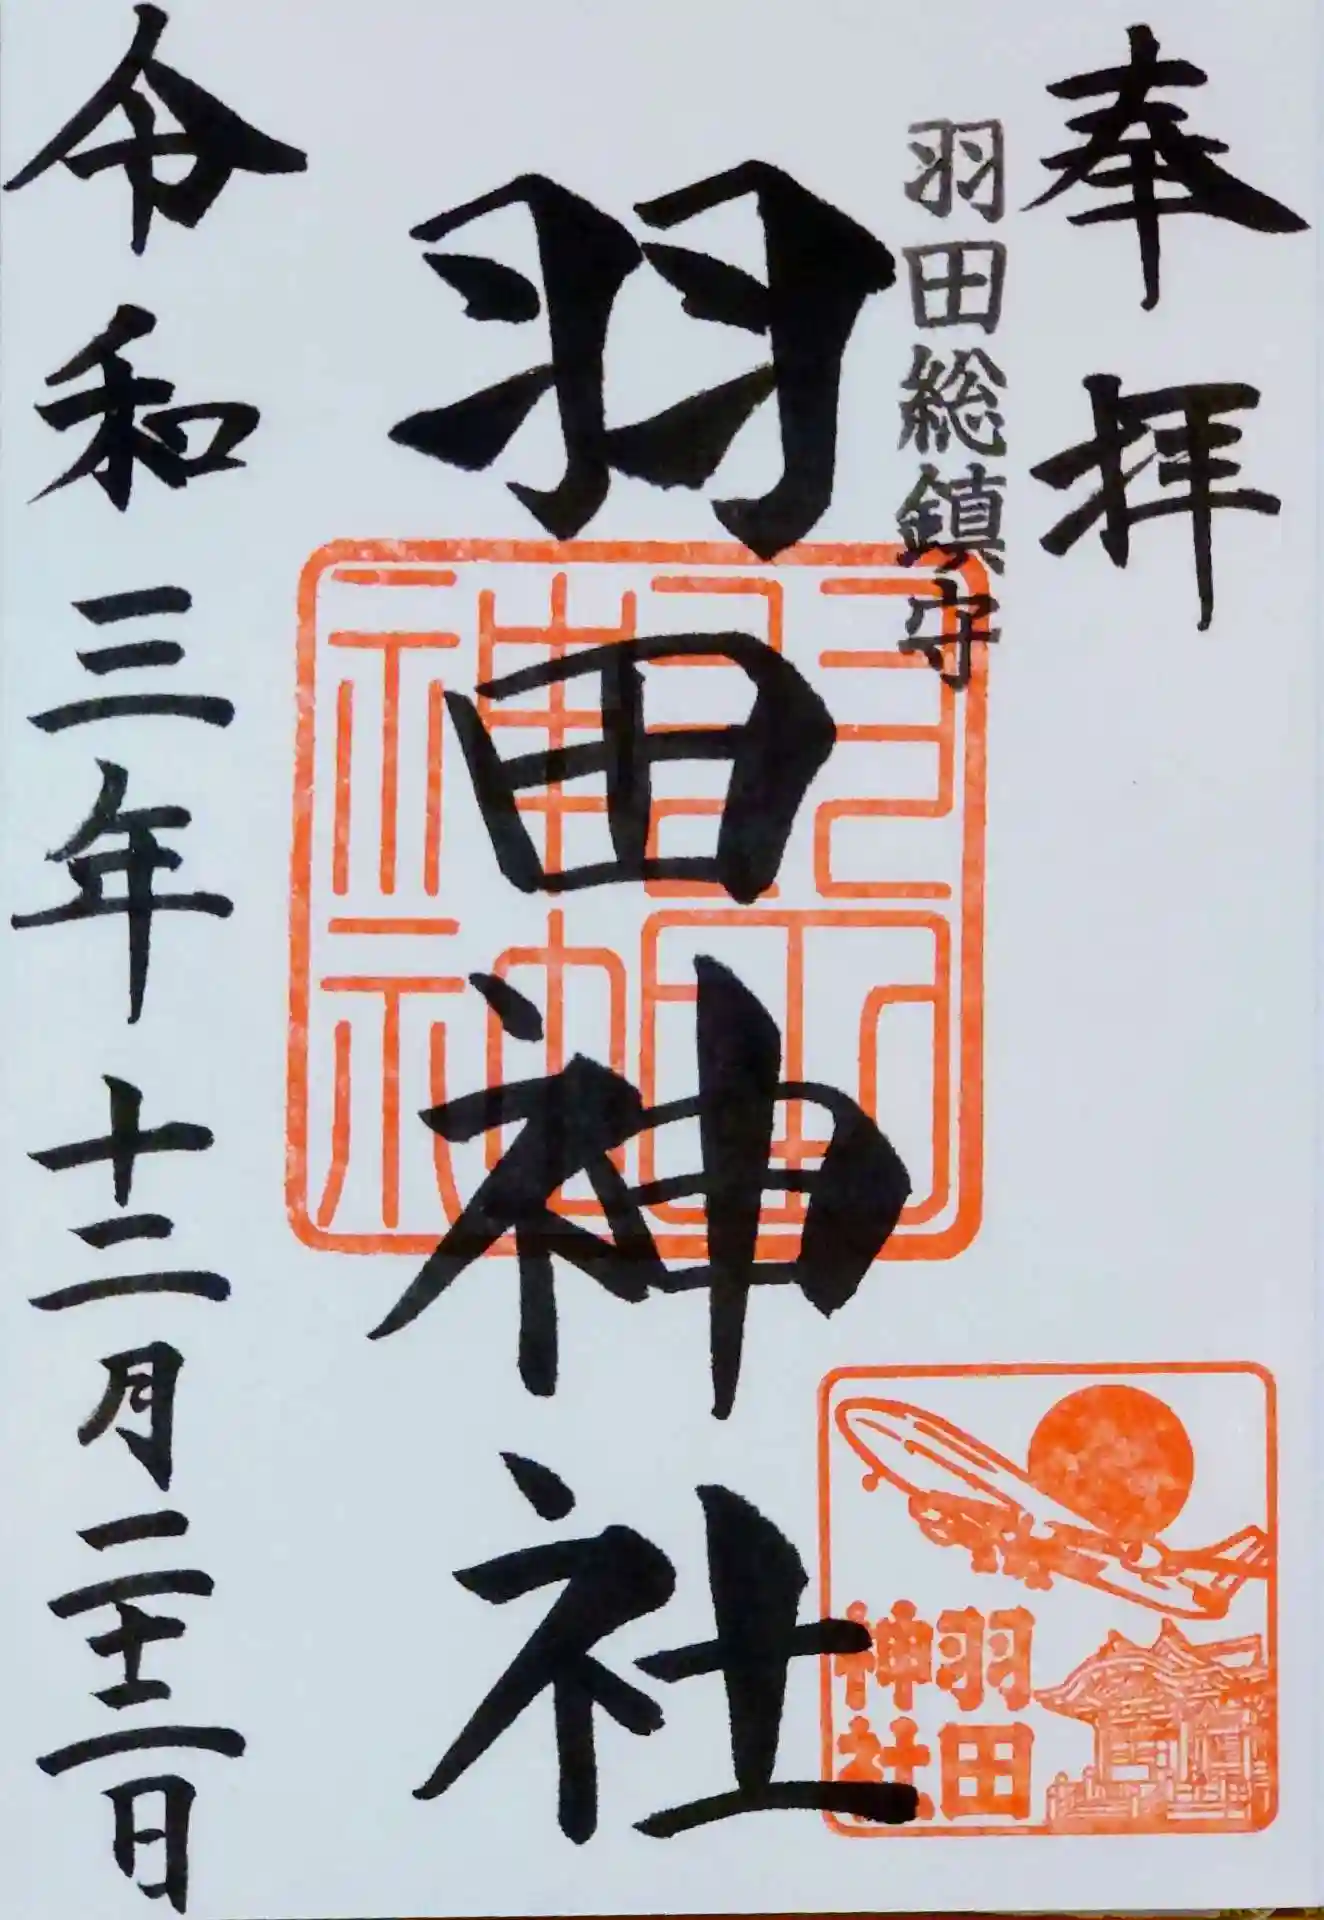 奉拝
羽田総鎮守
羽田神社
令和三年十二月二十二日
羽田
神社